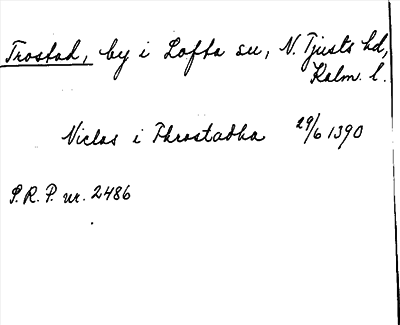 Trostad, by i Lofta sn, N. Tjusts hd,
Kalm. l.
Niclas i Throstadha 29/6 1390
S.R.P. nr. 2486